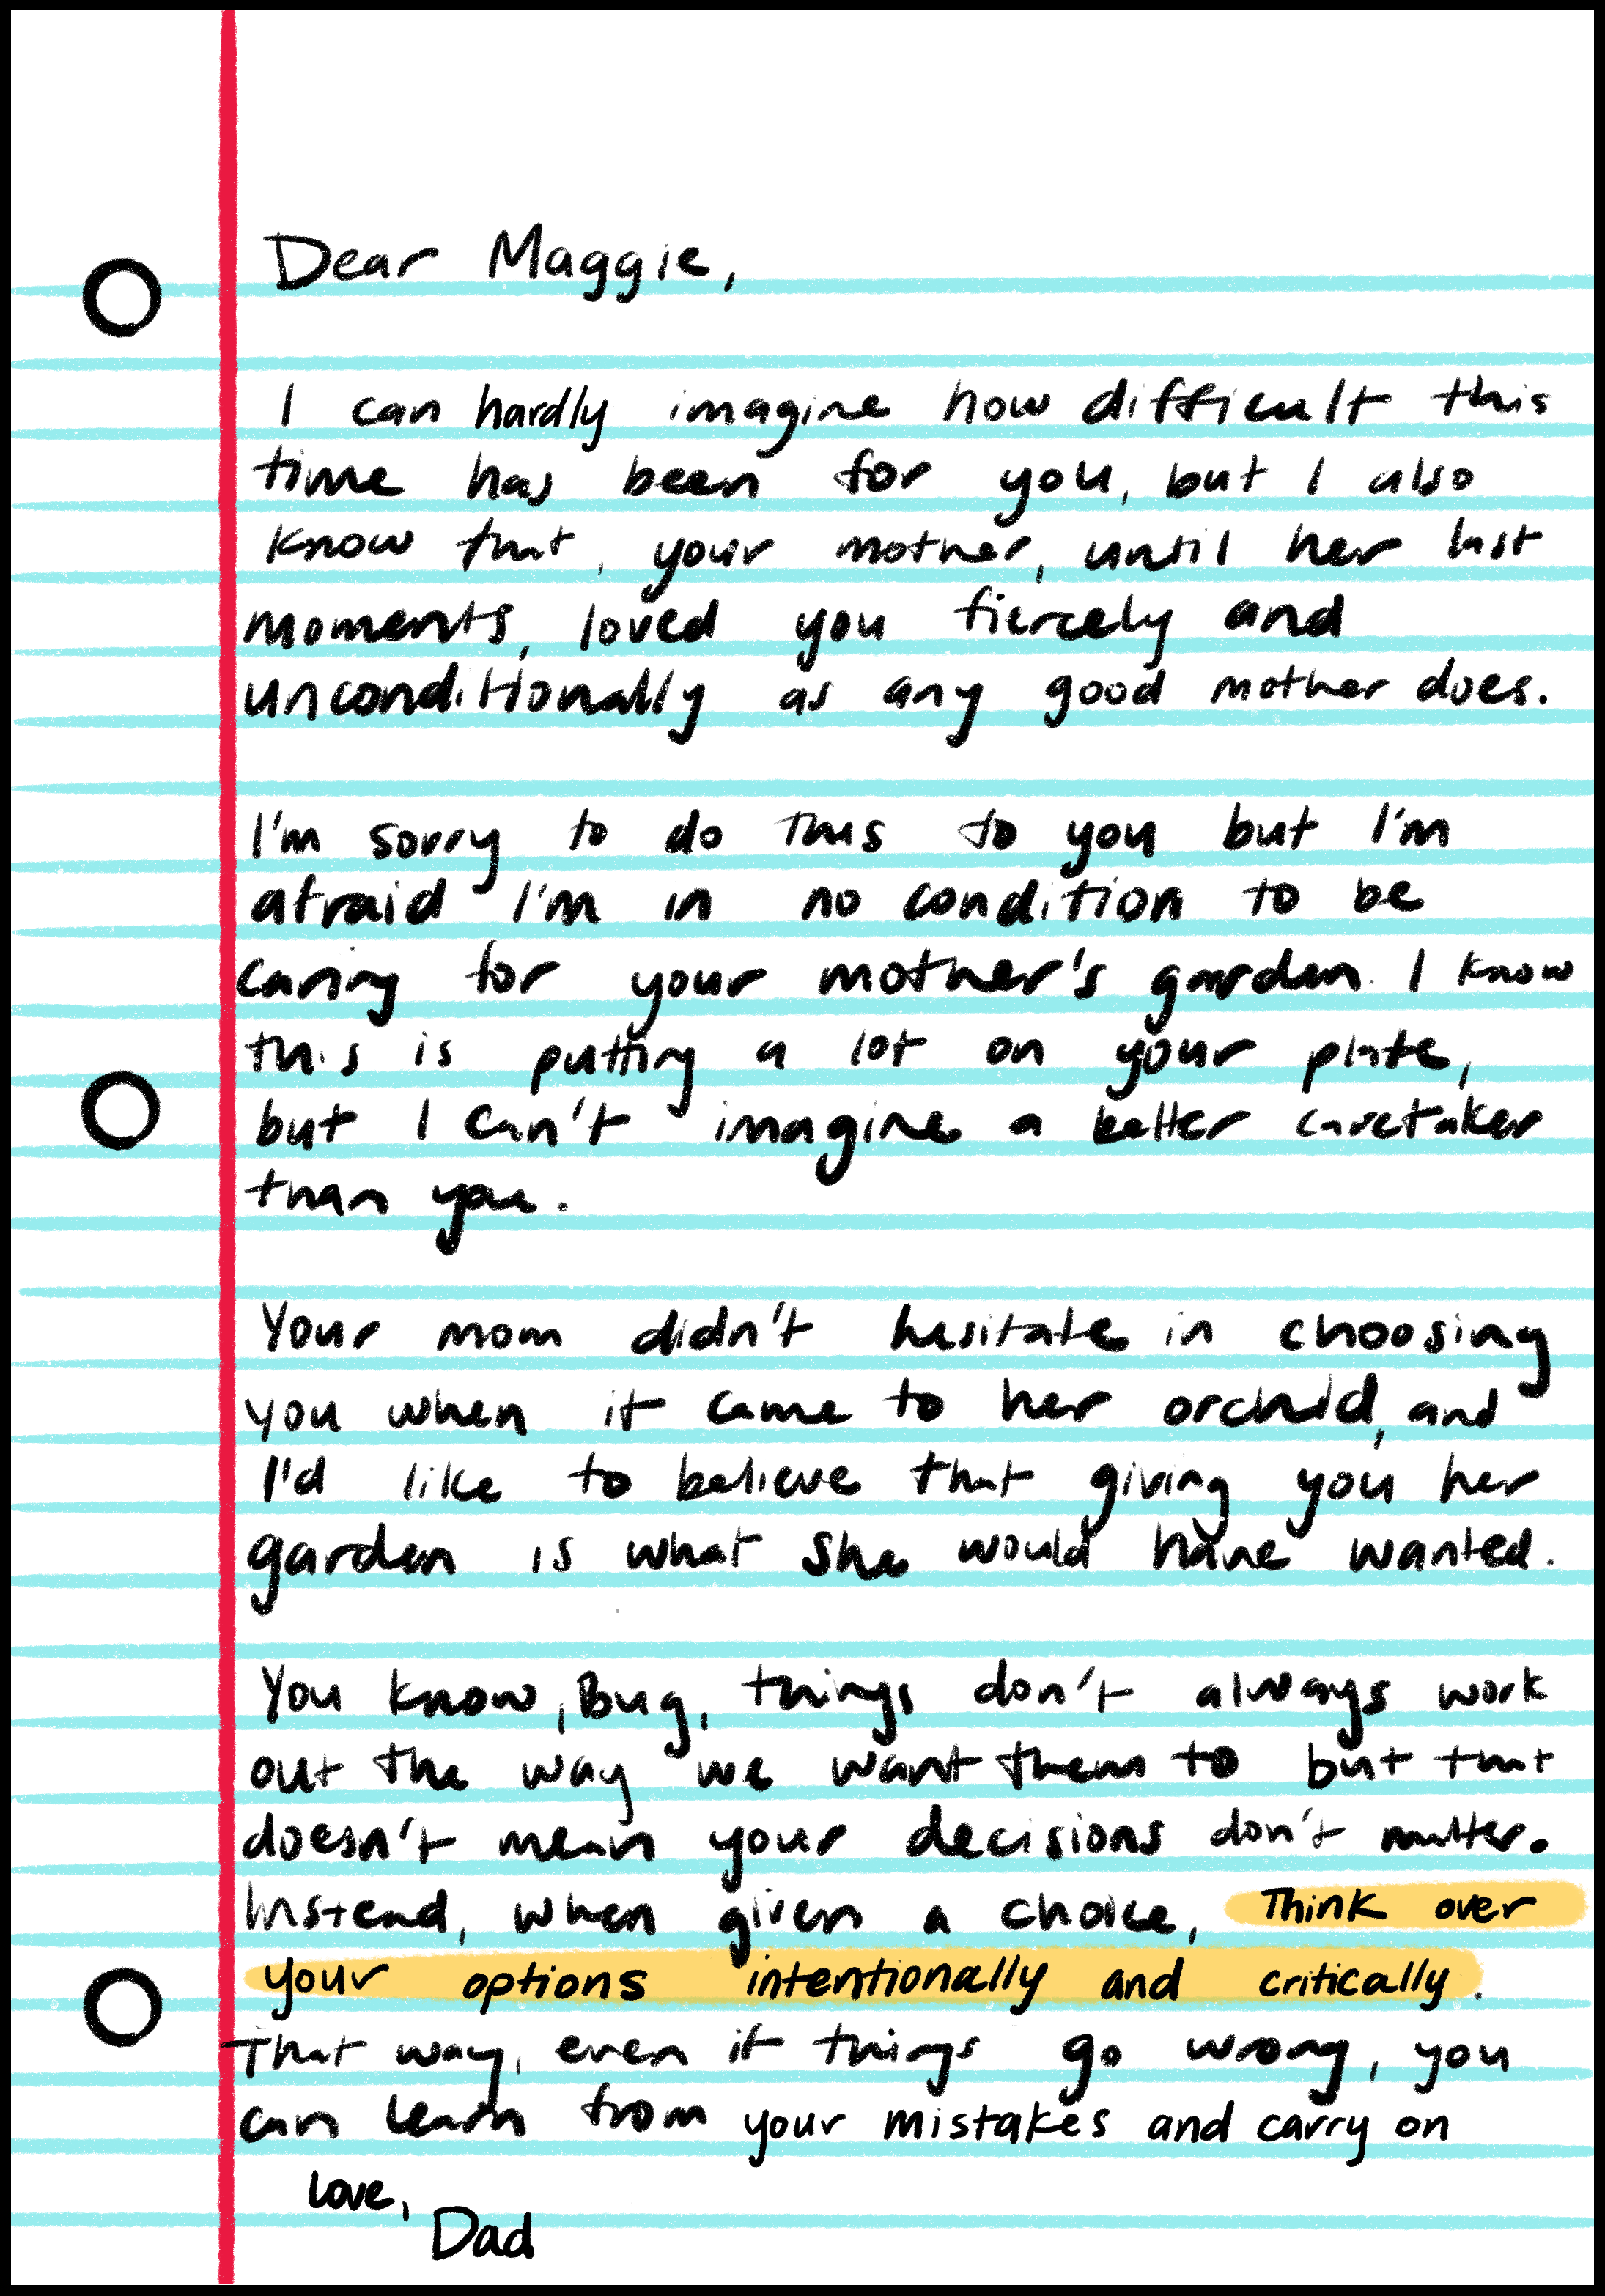 Dear Maggie,
I can hardly imagine how difficult this
time has been for you, but I also
know that, your mother, until her last
moments, loved you fiercely and
unconditionally as any good mother does.
I'm sorry to do this to you but I'm
afraid I'm in no condition to be
caring for your mother's garden. I know
this is putting a lot on your plate,
but I can't imagine a better caretaker
than you.
Your mom didn't hesitate in choosing
you when it came to her orchid, and
I'd like to believe that giving you her
garden is what she would have wanted.
You know, Bug, things don't always work
out the way we want them to but that
doesn't mean your decisions don't matter.
Instead, when given a choice, Think over
your options intentionally and critically.
That way, even if things go wrong, you
can learn from your mistakes and carry on
Love,
Dad